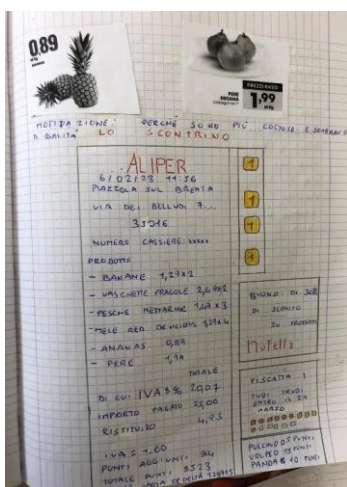 0.89
PERE
DECANA
PREZZO BASSO
1,99
MOTIVAZIONE: PERCHÉ SONO PIÙ COSTOSE E SEMBRANO
DI QUALITÀ
LO SCONTRINO
ALIPER
6/02/23 11:56
PIAZZOLA SUL BRENTA
VIA DEI BELLUDI 7...
35016
NUMERO CASSIERE: xxxxx
PRODOTTI
- BANANE 1,29x2
- VASCHETTE FRAGOLE 2,69x2
- PESCHE NETTARINE x3
- MELE RED DELICIOUS 1,79x4
- ANANAS 0,89
- PERE 1,99
TOTALE
DI CUI IVA 8% 20,07
IMPORTO PAGATO 25,00
RESTITUITO 4,93
IVA = 1,60
PUNTI AGGIUNTI 34
TOTALE PUNTI 3523
1
1
1
1
BUONO DI
DI SCONTO
SU PRODOTTI
nutella
RISCATTA I
TUOI PREMI
ENTRO IL 29
MARZO
PULCINO 25 PUNTI
VOLPE 15 PUNTI
PANDA 10 PUNTI